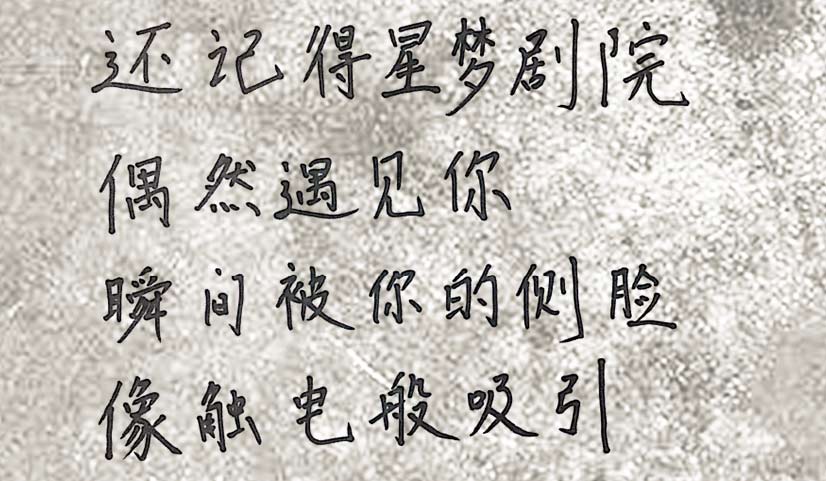 还记得星梦剧院
偶然遇见你
瞬间被你的侧脸
像触电般吸引